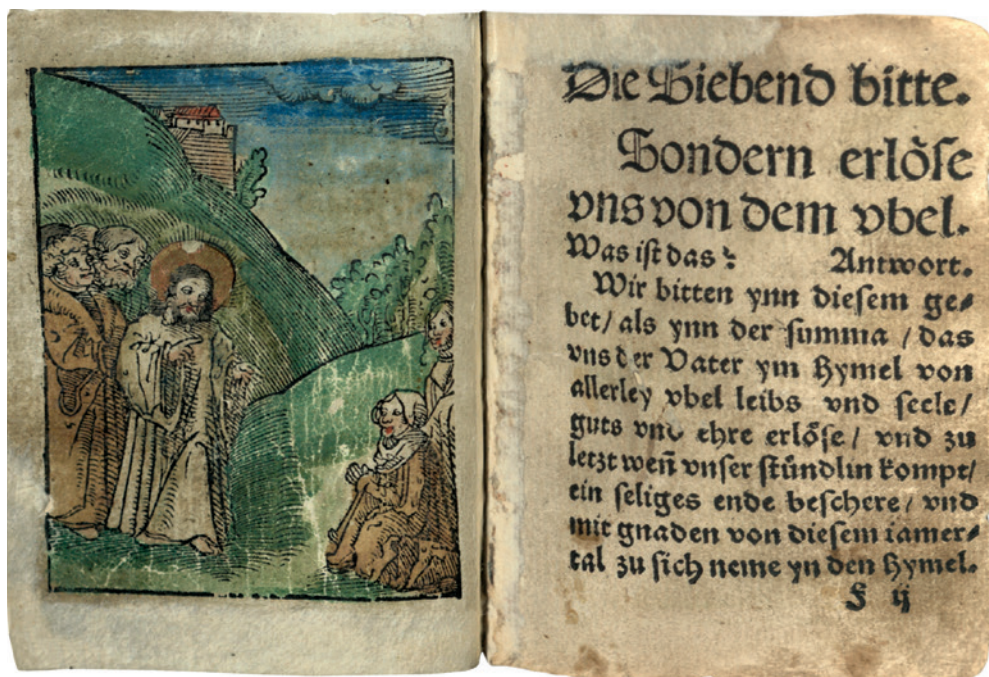 Die Siebend bitte.
Sondern erlöse
vns von dem vbel.
Was ist das? Antwort.
Wir bitten ynn diesem ge-
bet/ als ynn der summa / das
vns der Vater ym Hymel von
allerley vbel leibs vnd seele/
guts vnd ehre erlöse / vnd zu
letzt weñ vnser stündlin kompt/
ein seliges ende beschere / vnd
mit gnaden von diesem iamer-
tal zu sich neme yn den Hymel.
F ij